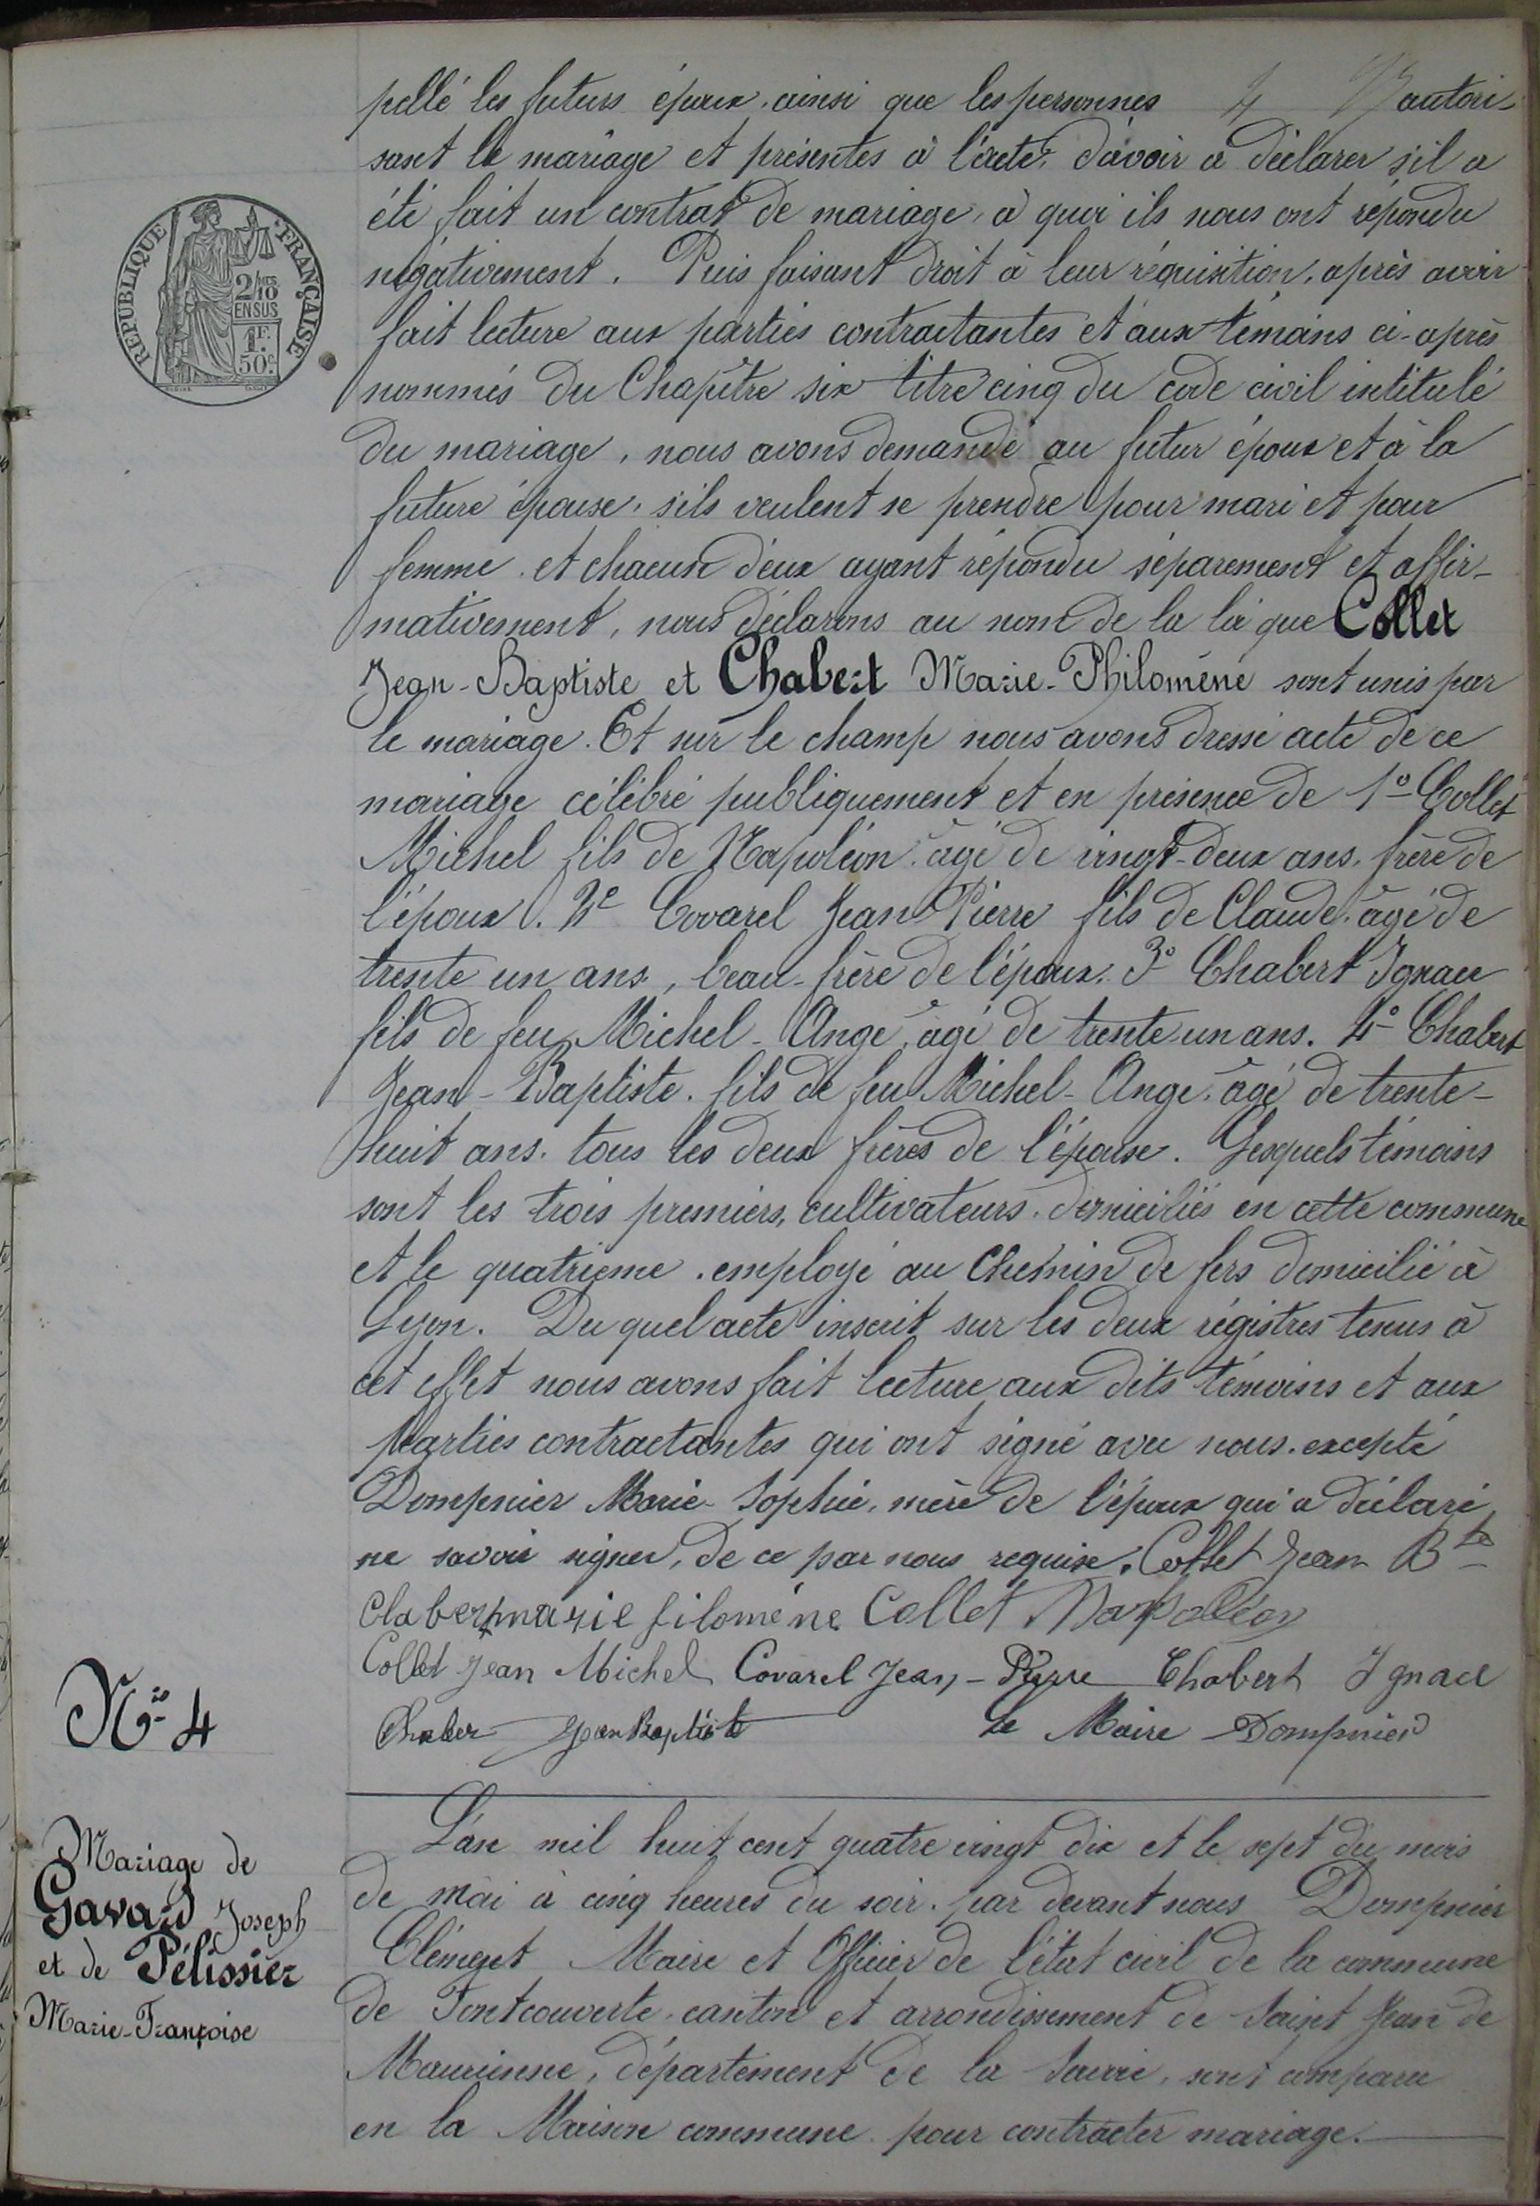 pellé les futurs époux, ainsi que les personnes autori-
sant le mariage et présentes à l'acte, d'avoir à déclarer s'il a
été fait un contrat de mariage, à quoi ils nous ont répondu
négativement. Puis faisant droit à leur réquisition, après avoir
fait lecture aux parties contractantes et aux témoins ci-après
nommés du Chapitre six titre cinq du code civil intitulé
du mariage, nous avons demandé au futur époux et à la
future épouse, s'ils veulent se prendre pour mari et pour
femme et chacun d'eux ayant répondu séparement et affir-
mativement, nous déclarons au nom de la loi que Collet
Jean-Baptiste et Chabert Marie-Philomène sont unis par
le mariage. Et sur le champ nous avons dressé acte de ce
mariage célébré publiquement et en présence de 1º Collet
Michel fils de Napoléon âgé de vingt-deux ans, frère de
l'époux. 2º Covarel Jean Pierre fils de Claude, âgé de
trente un ans, beau-frère de l'époux. 3º Chabert Ignace
fils de feu Michel-Ange, âgé de trente-un ans. 4º Chabert
Jean-Baptiste, fils de feu Michel-Ange, âgé de trente-
huit ans, tous les deux frères de l'épouse. Lesquels témoins
sont les trois premiers, cultivateurs, domiciliés en cette commune
et le quatrième, employé au Chemin de fers domicilié à
Lyon. Du quel acte inscrit sur les deux régistres tenus à
cet effet nous avons fait lecture aux dits témoins et aux
parties contractantes qui ont signé avec nous, excepté
Dompnier Marie-Sophie, mère de l'époux qui a déclaré
ne savoir signer, de ce par nous requise. Collet Jean Bte
Chabert marie filomène Collet Napoléon
Collet Jean Michel Covarel Jean-Pierre Chabert Ignace
Chaber Jean Baptiste le Maire Dompnier
REPUBLIQUE FRANÇAISE
2/10 EN SUS
1F. 50c.
Nº 4
Mariage de
Gavard Joseph
et de Pélissier
Marie-Françoise
L'an mil huit cent quatre vingt dix et le sept du mois
de mai à cinq heures du soir, par devant nous Dompnier
Clément Maire et Officier de l'état civil de la commune
de Fontcouverte, canton et arrondissement de Saint Jean de
Maurienne, département de la Savoie, sont comparu
en la Maison commune pour contracter mariage.